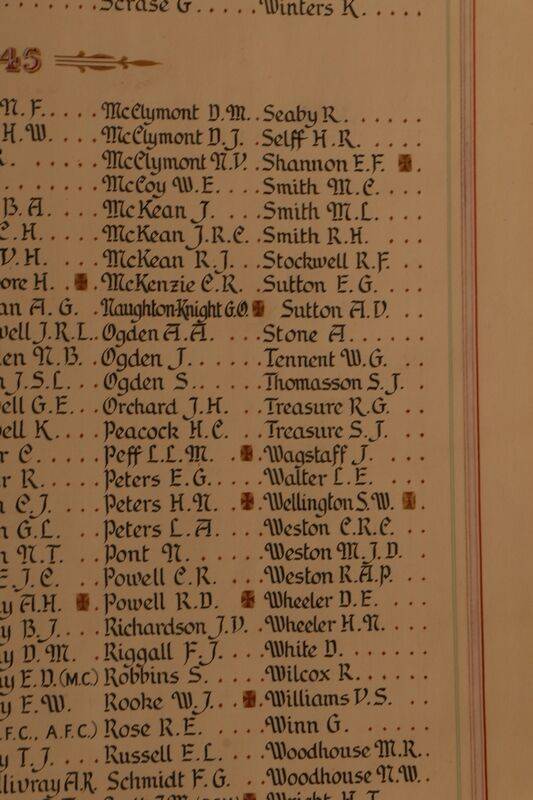 Scrase G ..... Winters K.....
45
N. F..... McClymont D.M.. Seaby R. ......
H.W.... McClymont D.J. Selff H.R. .....
R. ..... McClymont N.V. Shannon E.F. .
........ McCoy W.E.... Smith M.C. ....
B.A. .... McKean J. .... Smith M.L. ....
C.H. .... McKean J.R.C. . Smith R.H. ...
V.H. .... McKean R.J... Stockwell R.F. ..
ore H. .. McKenzie C.R. . Sutton E.G. ....
an A. G. . Naughton-Knight G.O. Sutton A.V. ..
well J.R.L.. Ogden A.A. ... Stone A ......
en N.B. Ogden J...... Tennent W.G. ..
n J.S.L... Ogden S...... Thomasson S.J. .
ell G.E... Orchard J.H. ... Treasure R.G. ...
ell K.... Peacock H.C. ... Treasure S.J. ...
r C..... Peff L.L.M. . Wagstaff J. ....
r R..... Peters E.G..... Walter L.E. ...
n C.J. .. Peters H.N. . Wellington S.W. .
n G.L. .. Peters L.A. ... Weston C.R.C. ..
n N.T. .. Pont N....... Weston M.J.D. .
E.J.C. .. Powell C.R. ... Weston R.A.P. ...
y A.H. . Powell R.D. . Wheeler D.E. ...
y B.J.... Richardson J.V. . Wheeler H.N. ...
y D.M. . Riggall F.J. ... White D. .....
y E.D. (M.C.) Robbins S. .... Wilcox R......
y E.W. Rooke W.J.. . Williams V.S. ...
.F.C., A.F.C.) Rose R.E. .... Winn G. ......
y T.J. ... Russell E.L. ... Woodhouse M.R..
llivray A.R. Schmidt F.G. .. Woodhouse N.W..
Wright H.T.